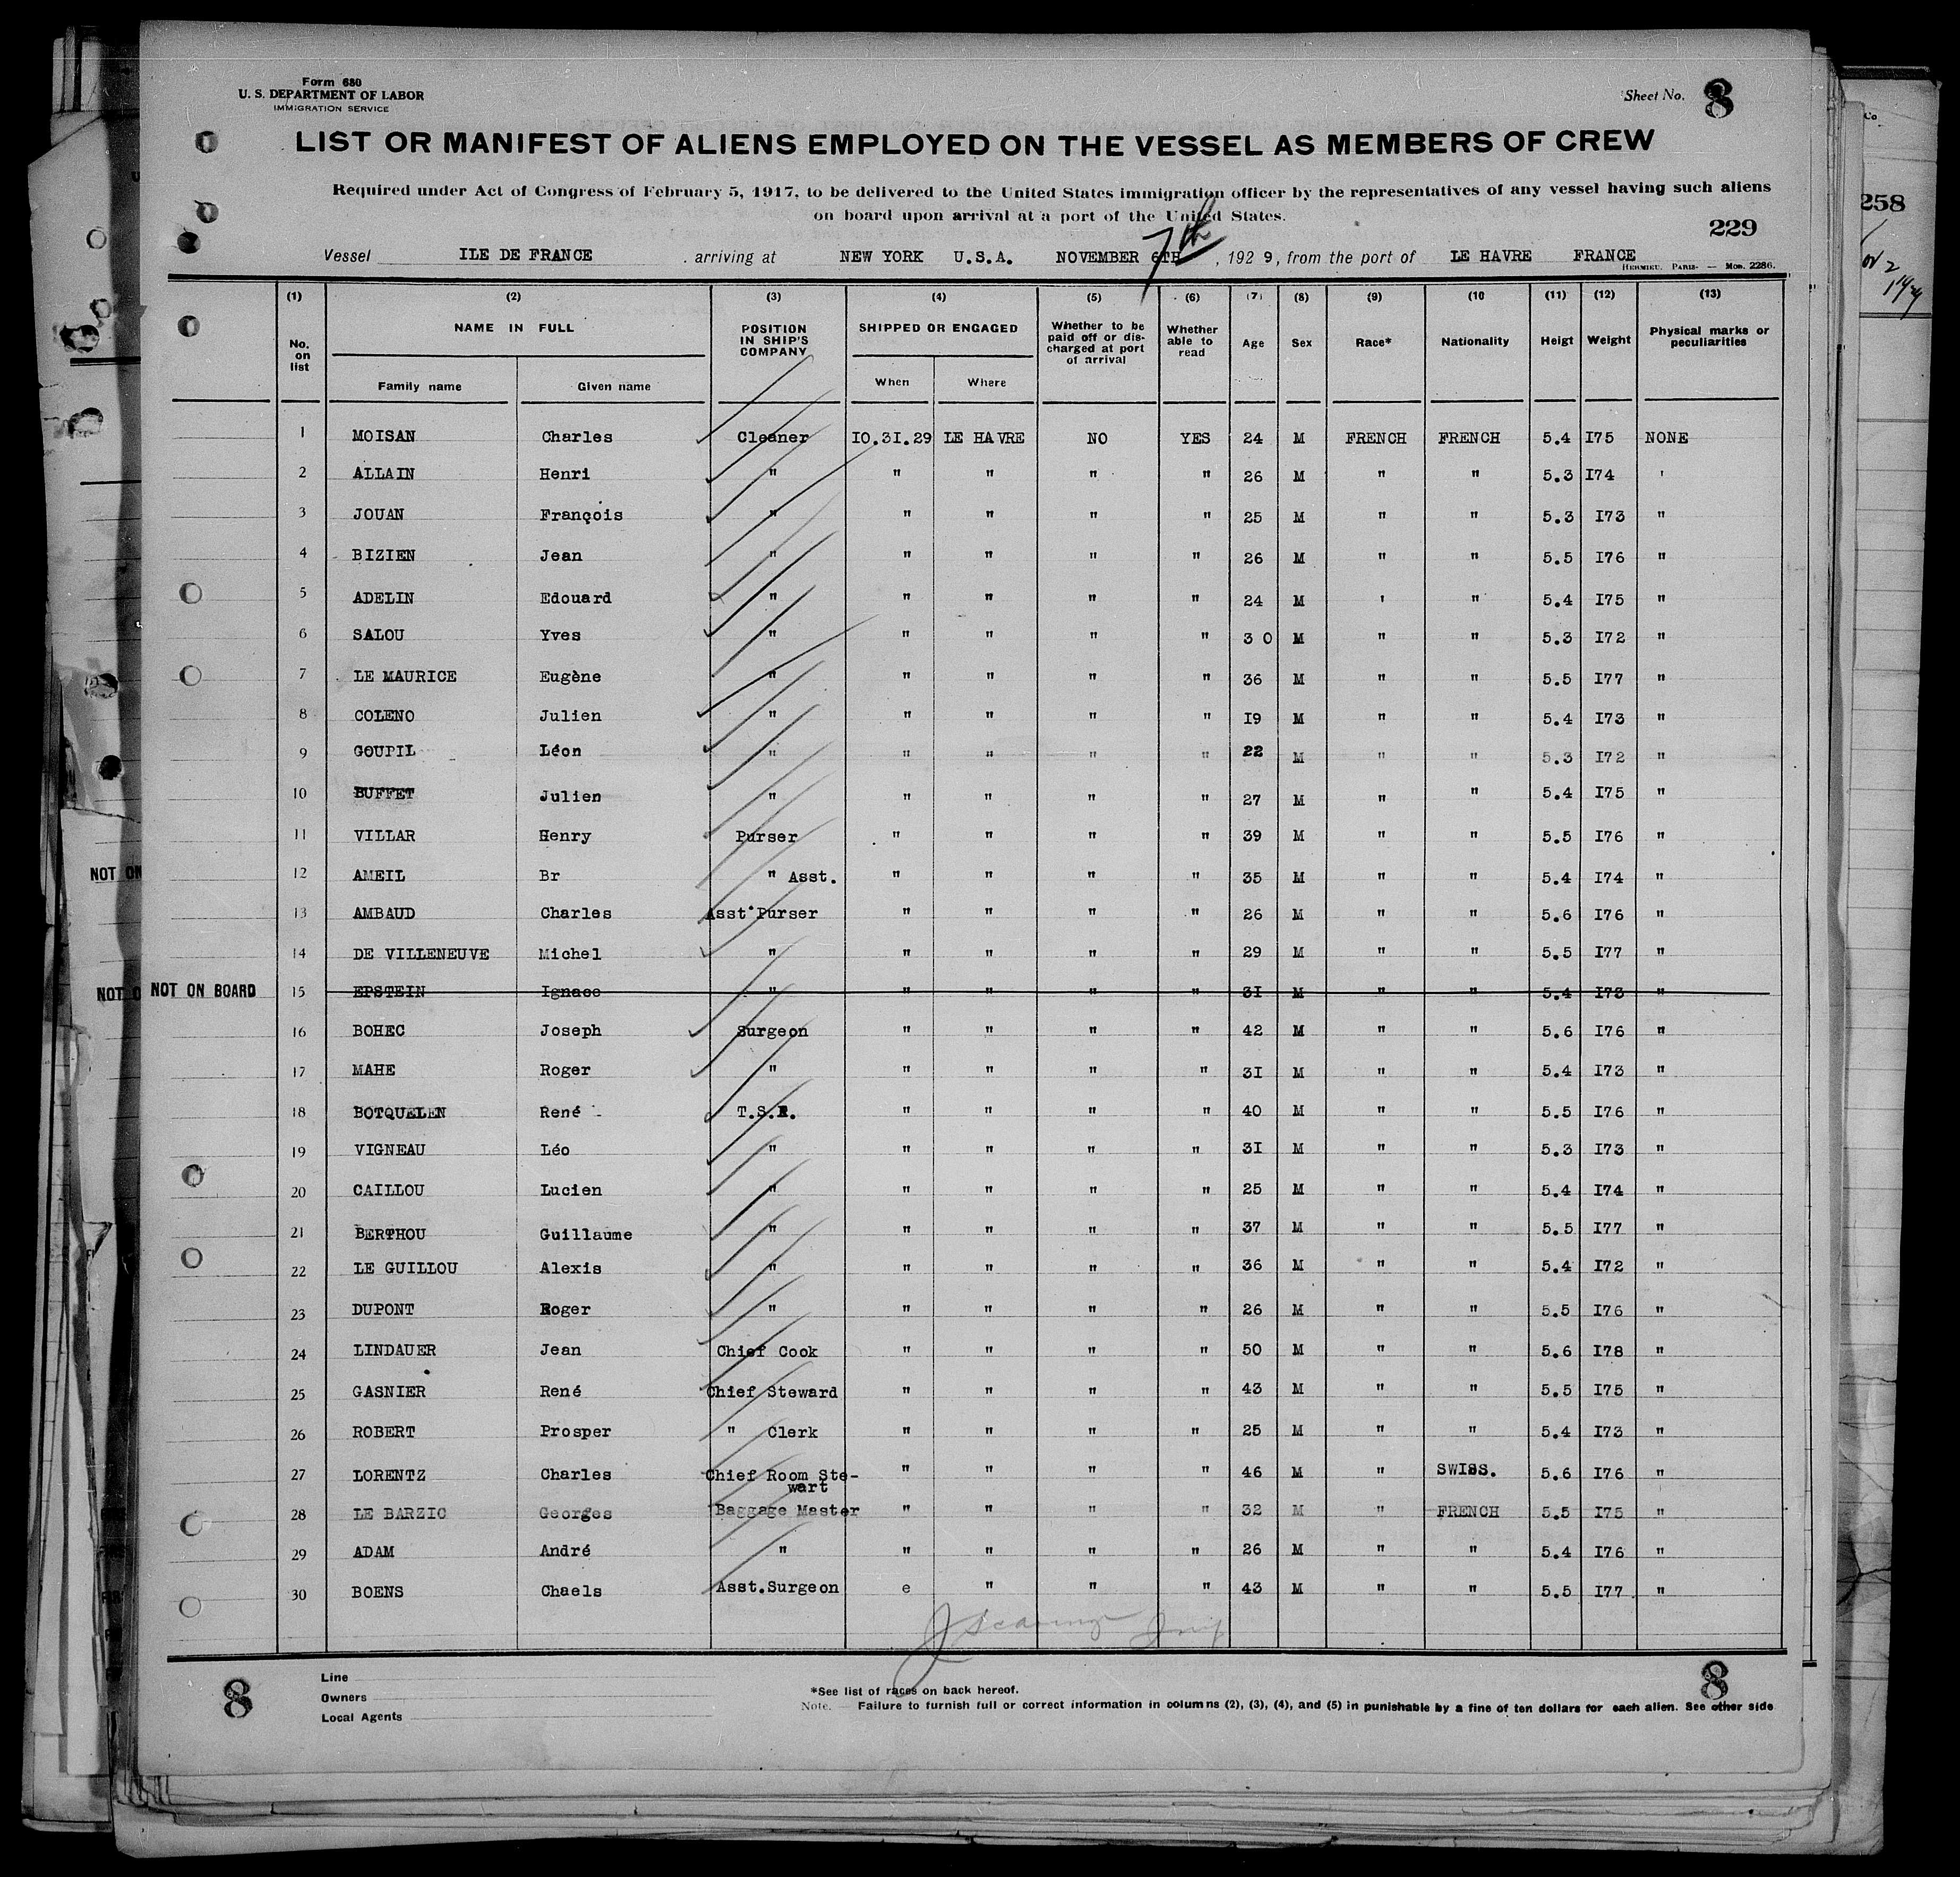 Form 680
U. S. DEPARTMENT OF LABOR
IMMIGRATION SERVICE
Sheet No. 8
LIST OR MANIFEST OF ALIENS EMPLOYED ON THE VESSEL AS MEMBERS OF CREW
Required under Act of Congress of February 5, 1917, to be delivered to the United States immigration officer by the representatives of any vessel having such aliens
on board upon arrival at a port of the United States.
229
258
Vessel ILE DE FRANCE . arriving at NEW YORK U.S.A. NOVEMBER 6TH 7th , 192 9, from the port of LE HAVRE FRANCE
HERMIEU. PARIS- — Mod. 2286.
(1) (2) (3) (4) (5) (6) (7) (8) (9) (10 (11) (12) (13)
No. on list NAME IN FULL POSITION IN SHIP'S COMPANY SHIPPED OR ENGAGED Whether to be paid off or dis-charged at port of arrival Whether able to read Age Sex Race* Nationality Heigt Weight Physical marks or peculiarities
Family name Given name When Where
1 MOISAN Charles Cleaner 10.31.29 LE HAVRE NO YES 24 M FRENCH FRENCH 5.4 175 NONE
2 ALLAIN Henri " " " " " 26 M " " 5.3 174 '
3 JOUAN François " " " " " 25 M " " 5.3 173 "
4 BIZIEN Jean " " " " " 26 M " " 5.5 176 "
5 ADELIN Edouard " " " " " 24 M ' " 5.4 175 "
6 SALOU Yves " " " " " 3 0 M " " 5.3 172 "
7 LE MAURICE Eugène " " " " " 36 M " " 5.5 177 "
8 COLENO Julien " " " " " 19 M " " 5.4 173 "
9 GOUPIL Léon " " " " " 22 M " " 5.3 172 "
10 BUFFET Julien " " " " " 27 M " " 5.4 175 "
11 VILLAR Henry Purser " " " " 39 M " " 5.5 176 "
12 AMEIL Br " Asst. " " " " 35 M " " 5.4 174 "
13 AMBAUD Charles Asst.Purser " " " " 26 M " " 5.6 176 "
14 DE VILLENEUVE Michel " " " " " 29 M " " 5.5 177 "
NOT ON BOARD 15 EPSTEIN Ignace " " " " " 31 M " " 5.4 178 "
16 BOHEC Joseph Surgeon " " " " 42 M " " 5.6 176 "
17 MAHE Roger " " " " " 31 M " " 5.4 173 "
18 BOTQUELEN René T.S.F. " " " " 40 M " " 5.5 176 "
19 VIGNEAU Léo " " " " " 31 M " " 5.3 173 "
20 CAILLOU Lucien " " " " " 25 M " " 5.4 174 "
21 BERTHOU Guillaume " " " " " 37 M " " 5.5 177 "
22 LE GUILLOU Alexis " " " " " 36 M " " 5.4 172 "
23 DUPONT Roger " " " " " 26 M " " 5.5 176 "
24 LINDAUER Jean Chief Cook " " " " 50 M " " 5.6 178 "
25 GASNIER René Chief Steward " " " " 43 M " " 5.5 175 "
26 ROBERT Prosper " Clerk " " " " 25 M " " 5.4 173 "
27 LORENTZ Charles Chief Room Ste- " " " " 46 M " SWISS. 5.6 176 "
wart
28 LE BARZIC Georges Baggage Master " " " " 32 M " FRENCH 5.5 175 "
29 ADAM André " " " " " 26 M " " 5.4 176 "
30 BOENS Chaels Asst.Surgeon e " " " 43 M " " 5.5 177 "
8
Line
Owners
Local Agents
*See list of races on back hereof.
Note. — Failure to furnish full or correct information in columns (2), (3), (4), and (5) in punishable by a fine of ten dollars for each alien. See other side
8